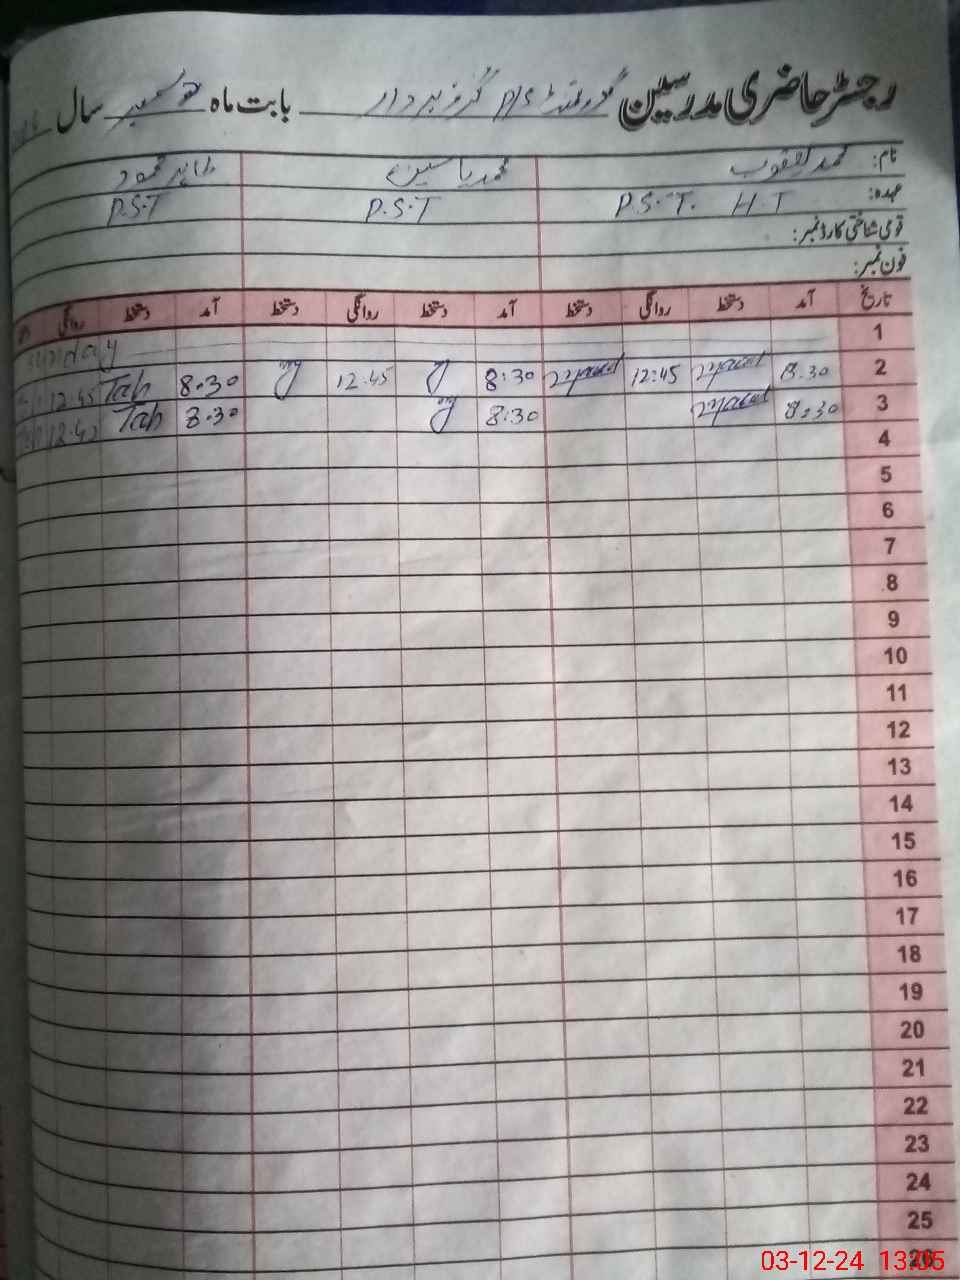 رجسٹر حاضری مدرسین گورنمنٹ P/S بابت ماہ سال
نام: محمد یعقوب محمد یاسین طاہر محمود
عہدہ: P.S.T. H.T P.S.T P.S.T
قومی شناختی کارڈ نمبر:
فون نمبر:
تاریخ آمد دستخط روانگی دستخط آمد دستخط روانگی دستخط آمد دستخط روانگی
1 Sunday
2 8.30 12:45 8:30 12.45 8.30 Tah 12.45
3 8:30 8:30 8.30 Tah
4
5
6
7
8
9
10
11
12
13
14
15
16
17
18
19
20
21
22
23
24
25
26
03-12-24 13:05